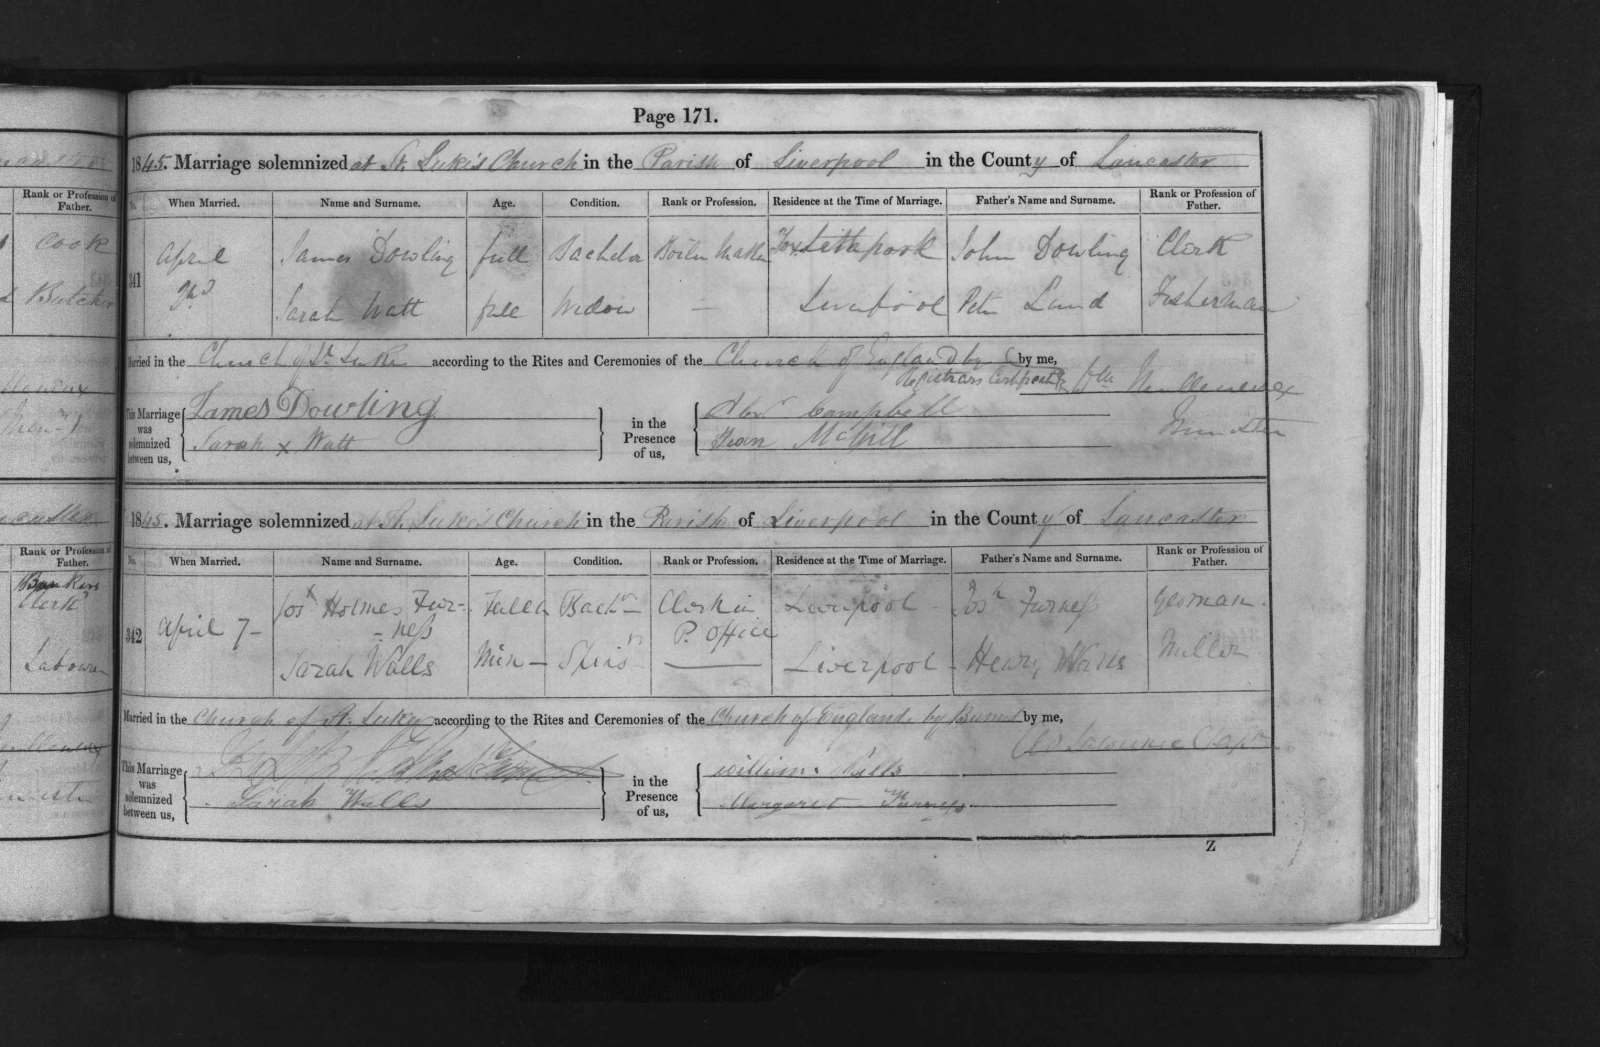 Page 171.
1845. Marriage solemnized at St. Luke's Church in the Parish of Liverpool in the County of Lancaster
No. When Married. Name and Surname. Age. Condition. Rank or Profession. Residence at the Time of Marriage. Father's Name and Surname. Rank or Profession of Father.
341 April James Dowling full Bachelor Boiler Maker Toxteth park John Dowling Clerk
Sarah Watt full Widow — Liverpool Peter Lund Fisherman
Married in the Church of St. Luke according to the Rites and Ceremonies of the Church of England by by me,
Registrars Certificate
Minister
This Marriage was solemnized between us, James Dowling
Sarah x Watt
in the Presence of us, Alexr Campbell
Jean McGill
1845. Marriage solemnized at St. Luke's Church in the Parish of Liverpool in the County of Lancaster
No. When Married. Name and Surname. Age. Condition. Rank or Profession. Residence at the Time of Marriage. Father's Name and Surname. Rank or Profession of Father.
342 April 7 – Josh Holmes Fur- Full Bachr Clerk in Liverpool – Josh Furness Yeoman
- ness P. Office
Sarah Walls Min – Spinr — Liverpool – Henry Walls Miller
Married in the Church of St. Luke according to the Rites and Ceremonies of the Church of England by Banns by me,
This Marriage was solemnized between us,
Sarah Walls
in the Presence of us, William
Margaret Furness
Z
Rank or Profession of Father.
Cook
Butcher
Rank or Profession of Father.
Clerk
Labourer